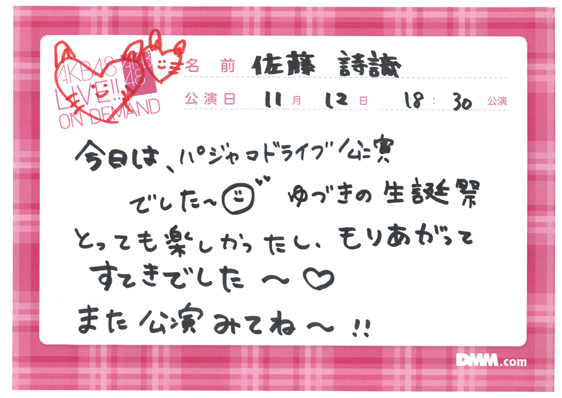 AKB48
LIVE!!
ON DEMAND
名前 佐藤 詩識
公演日 11月 12日 18:30 公演
今日は、パジャマドライブ公演
でした〜 ゆづきの生誕祭
とっても楽しかったし、もりあがって
すてきでした 〜♡
また公演みてね〜 !!
DMM.com